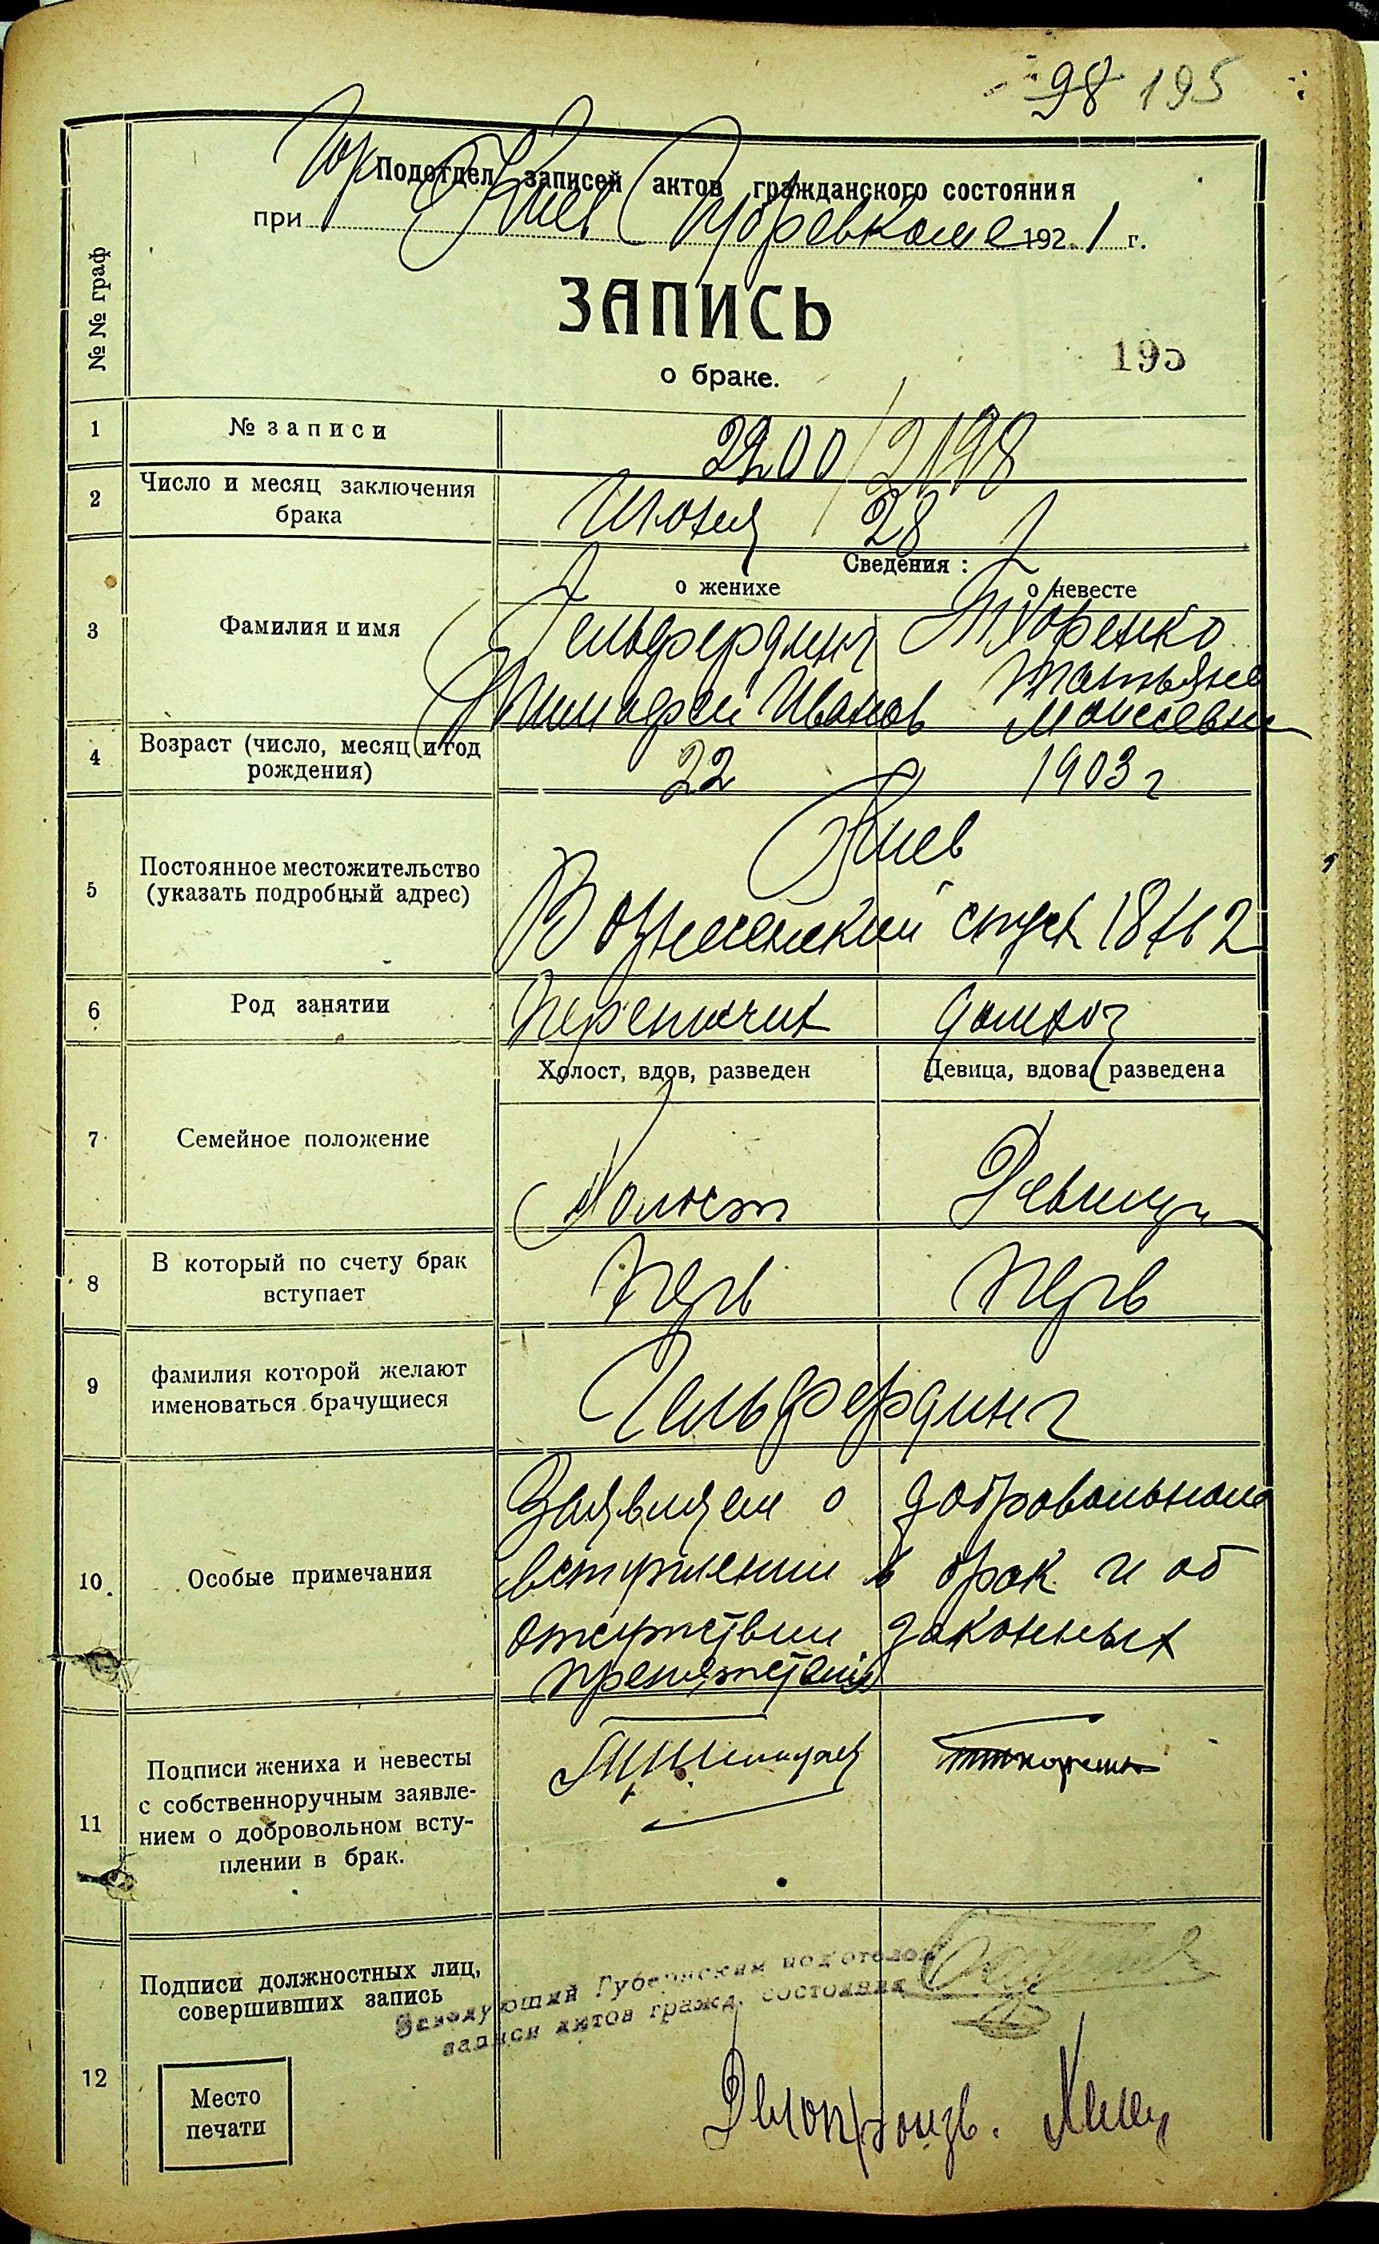 98 195
Гор Подотдел записей актов гражданского состояния
при Киев Губревкоме 1921 г.
ЗАПИСЬ
о браке.
195
№ № граф
1 № записи 2200/2198
2 Число и месяц заключения брака Июня 28
Сведения :
о женихе о невесте
3 Фамилия и имя Гельфердинг Ткоренко
Тимофей Иванов Татьяна
Моисеевна
4 Возраст (число, месяц и год рождения) 22 1903 г
5 Постоянное местожительство (указать подробный адрес) Киев
Вознесенский спуск 18 кв 2
6 Род занятии переписчик домхоз
Холост, вдов, разведен Девица, вдова, разведена
7 Семейное положение Холост Девица
8 В который по счету брак вступает перв перв
9 фамилия которой желают именоваться брачущиеся Гельфердинг
10. Особые примечания Заявляем о добровольном
вступлении в брак и об
отсутствии законных
препятствий
11 Подписи жениха и невесты
с собственноручным заявле-
нием о добровольном всту-
плении в брак.
12 Подписи должностных лиц,
совершивших запись
Заведующий Губернским подотделом
записи актов гражд. состояния
Место
печати
Делопроизв.